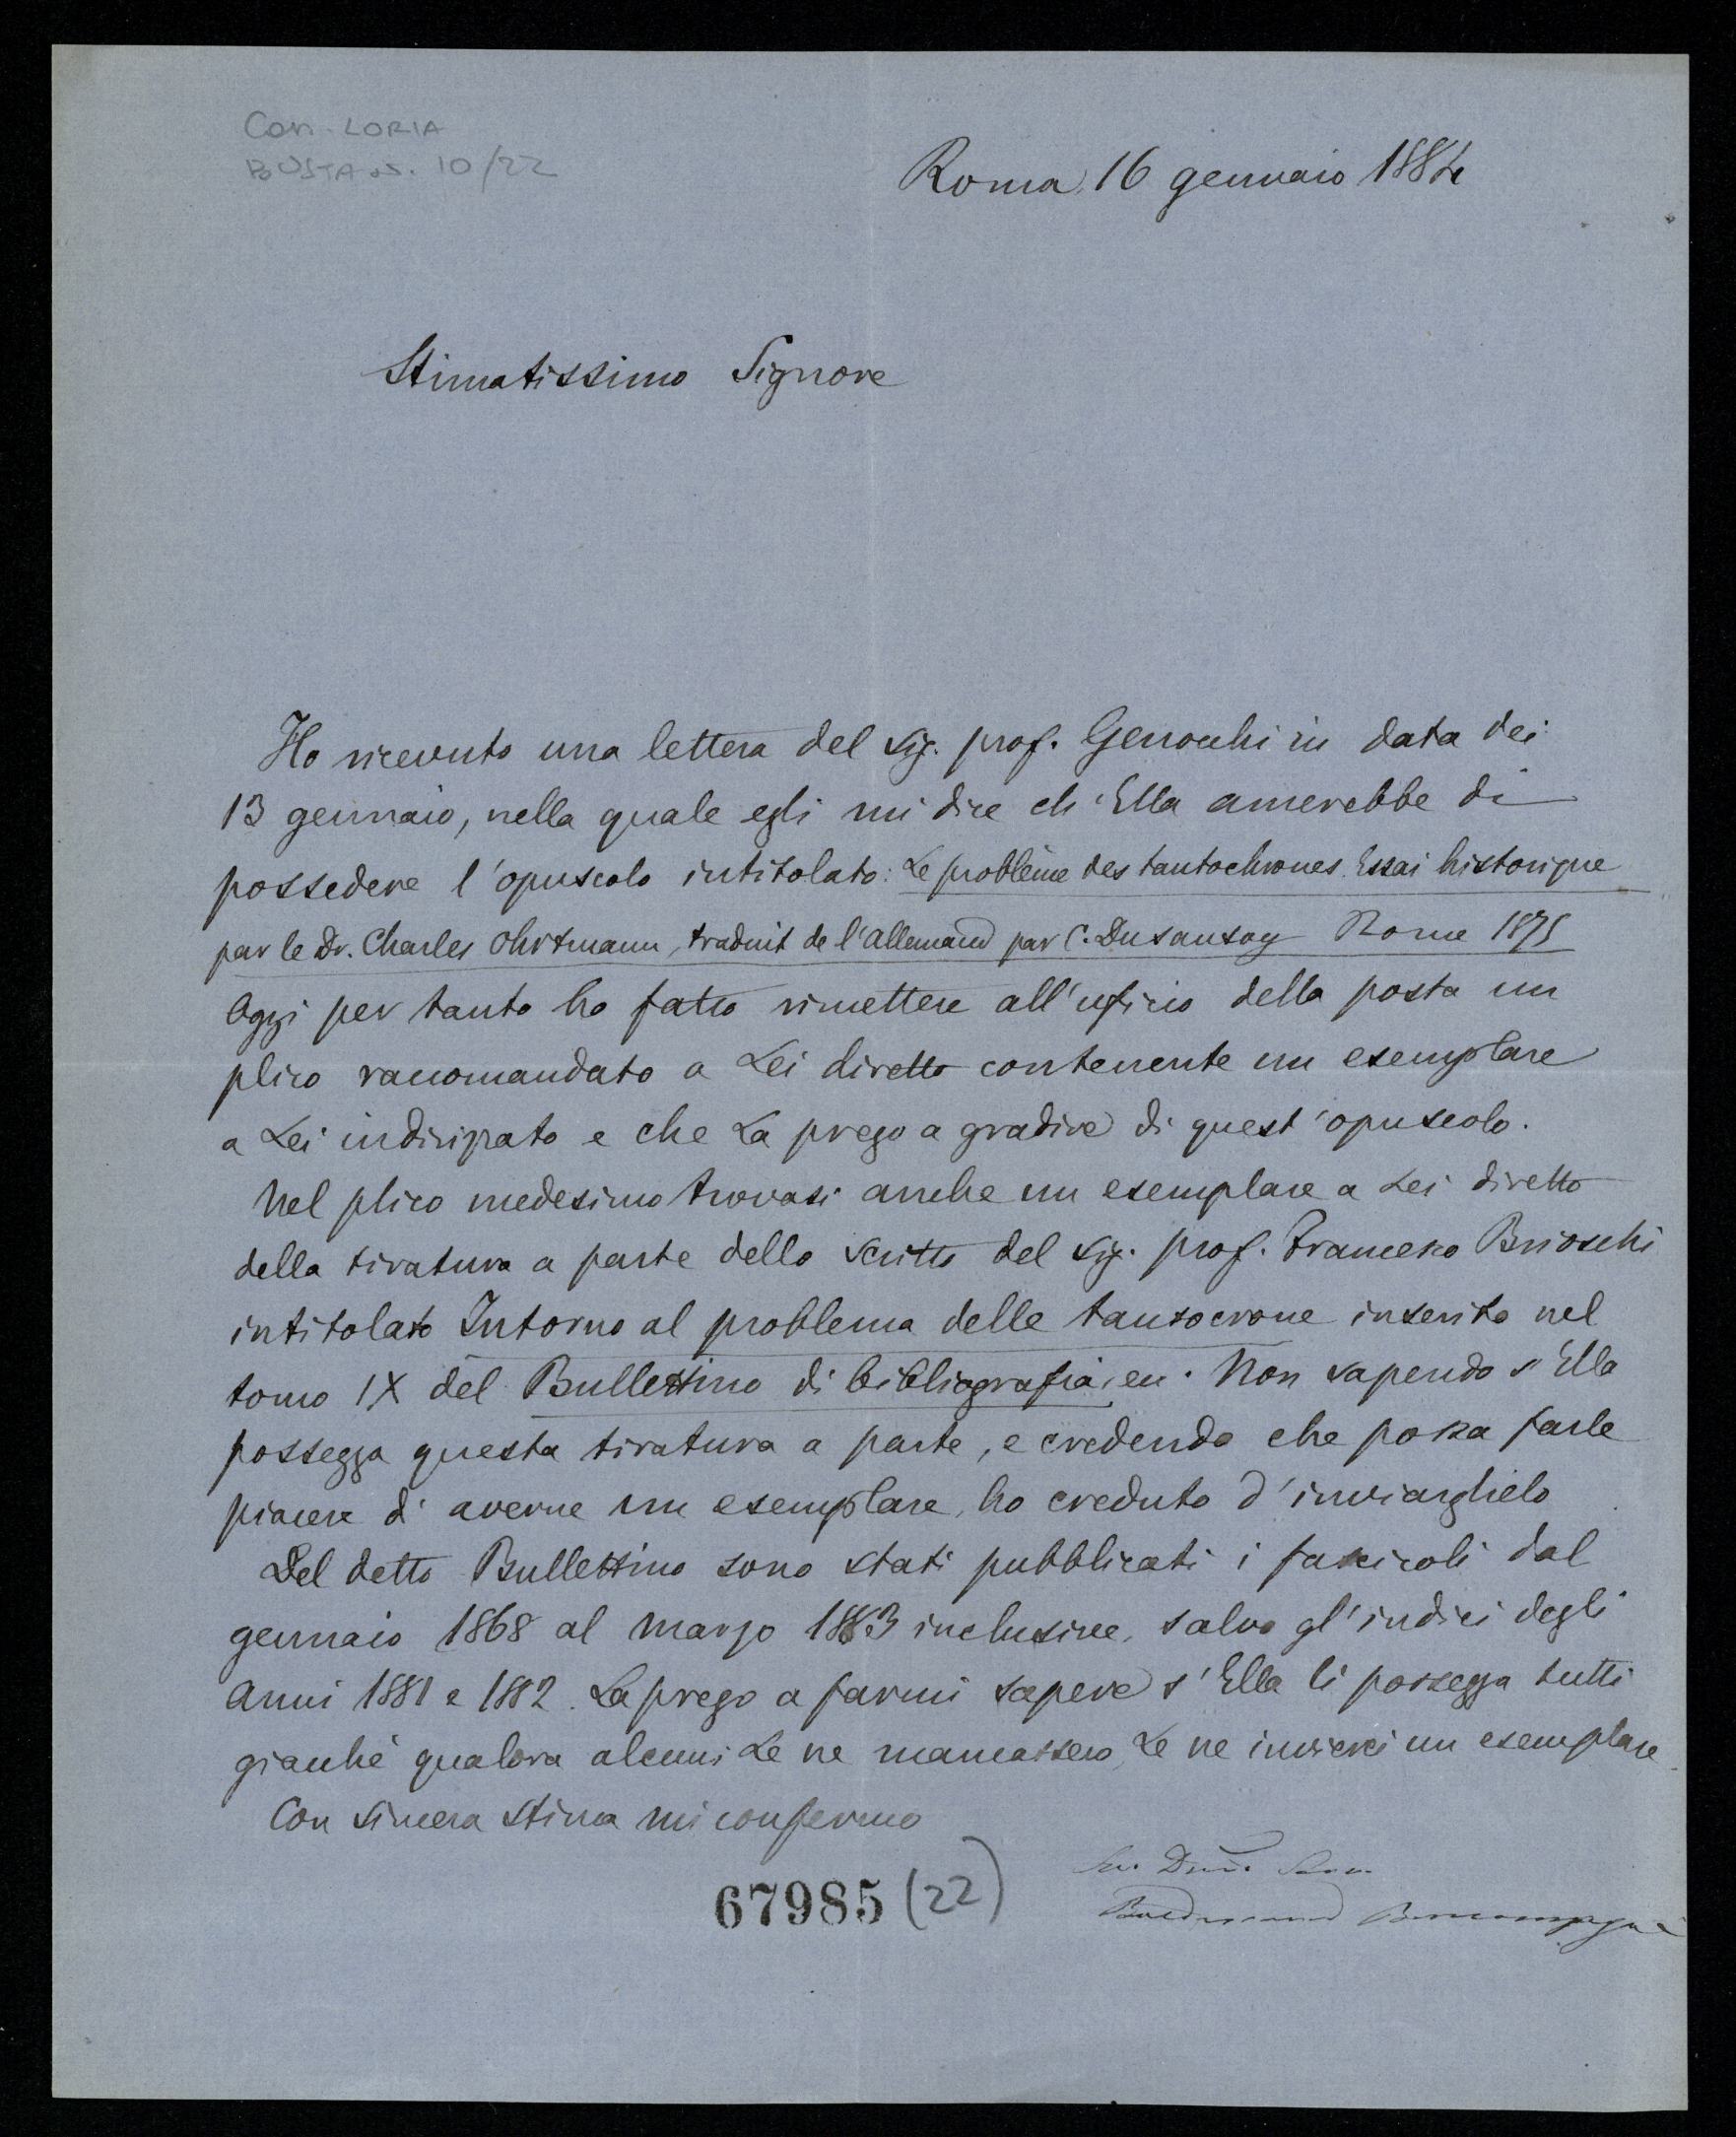 Corr. LORIA
BUSTA n. 10/22
Roma, 16 gennaio 1884
Stimatissimo Signore
Ho ricevuto una lettera del sig. prof. Genocchi in data dei
13 gennaio, nella quale egli mi dice ch'Ella amerebbe di
possedere l'opuscolo intitolato: Le problème des tautochrones. Essai historique
par le Dr. Charles Ohrtmann, traduit de l'allemand par C. Dusausoy Rome 1875
Oggi per tanto ho fatto rimettere all'uficio della posta un
plico raccomandato a Lei diretto contenente un esemplare
a Lei indirizzato e che La prego a gradire di quest'opuscolo.
Nel plico medesimo trovasi anche un esemplare a Lei diretto
della tiratura a parte dello scritto del sig. prof. Francesco Brioschi
intitolato Intorno al problema delle tautocrone inserito nel
tomo IX del Bullettino di bibliografia, ecc. Non sapendo s'Ella
possegga questa tiratura a parte, e credendo che possa farle
piacere d'averne un esemplare, ho creduto d'inviarglielo
Del detto Bullettino sono stati pubblicati i fascicoli dal
gennaio 1868 al marzo 1883 inclusive, salvo gl'indici degli
anni 1881 e 1882. La prego a farmi sapere s'Ella li possegga tutti
giacchè qualora alcuni Le ne mancassero, Le ne invierei un esemplare
Con sincera stima mi confermo
67985 (22)
Suo Devmo. Serv.
Baldassarre Boncompagni